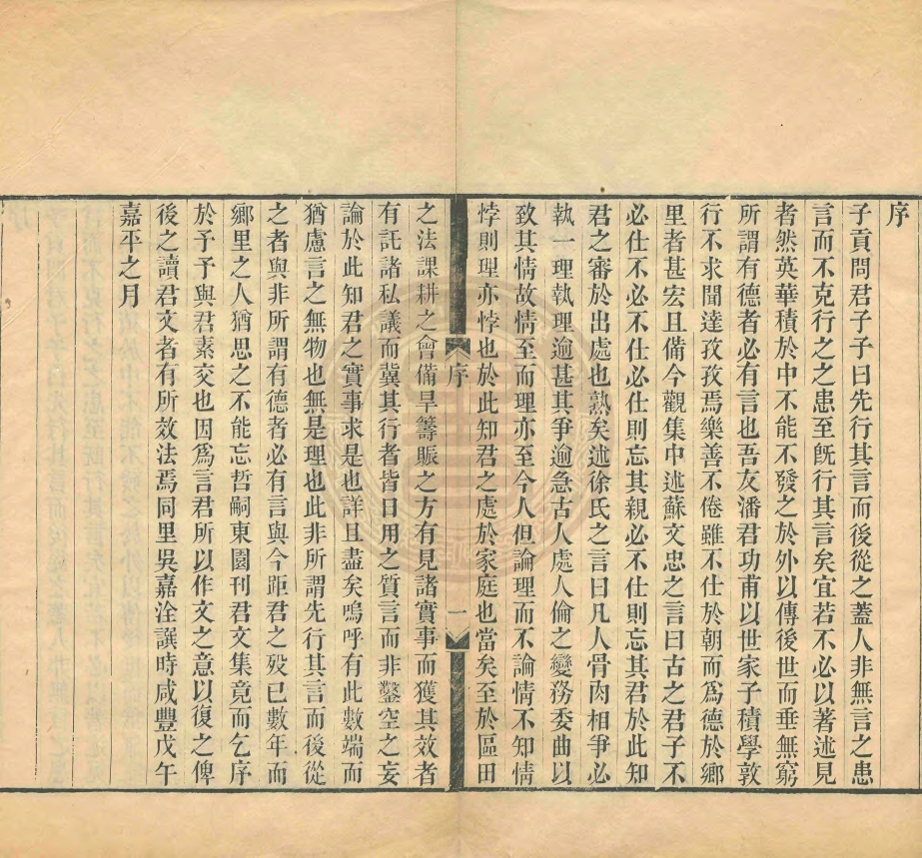 序
子貢問君子子曰先行其言而後從之蓋人非無言之患患
言而不克行之之患至旣行其言矣宜若不必以著述見
者然英華積於中不能不發之於外以傳後世而垂無窮
所謂有德者必有言也吾友潘君功甫以世家子積學敦
行不求聞達孜孜焉樂善不倦雖不仕於朝而爲德於鄉
里者甚宏且備今觀集中述蘇文忠之言曰古之君子不
必仕不必不仕必仕則忘其親必不仕則忘其君於此知
君之審於出處也熟矣述徐氏之言曰凡人骨肉相爭必
執一理執理逾甚其爭逾急古人處人倫之變務委曲以
致其情故情至而理亦至今人但論理而不論情不知情
悖則理亦悖也於此知君之處於家庭也當矣至於區田
序
一
之法課耕之會備旱籌賑之方有見諸實事而獲其效者
有託諸私議而冀其行者皆日用之質言而非鑿空之妄
論於此知君之實事求是也詳且盡矣嗚呼有此數端而
猶慮言之無物也無是理也此非所謂先行其言而後從
之者與非所謂有德者必有言與今距君之歿已數年而
鄉里之人猶思之不能忘哲嗣東園刊君文集竟而乞序
於予予與君素交也因爲言君所以作文之意以復之俾
後之讀君文者有所效法焉同里吳嘉淦譔時咸豐戊午
嘉平之月